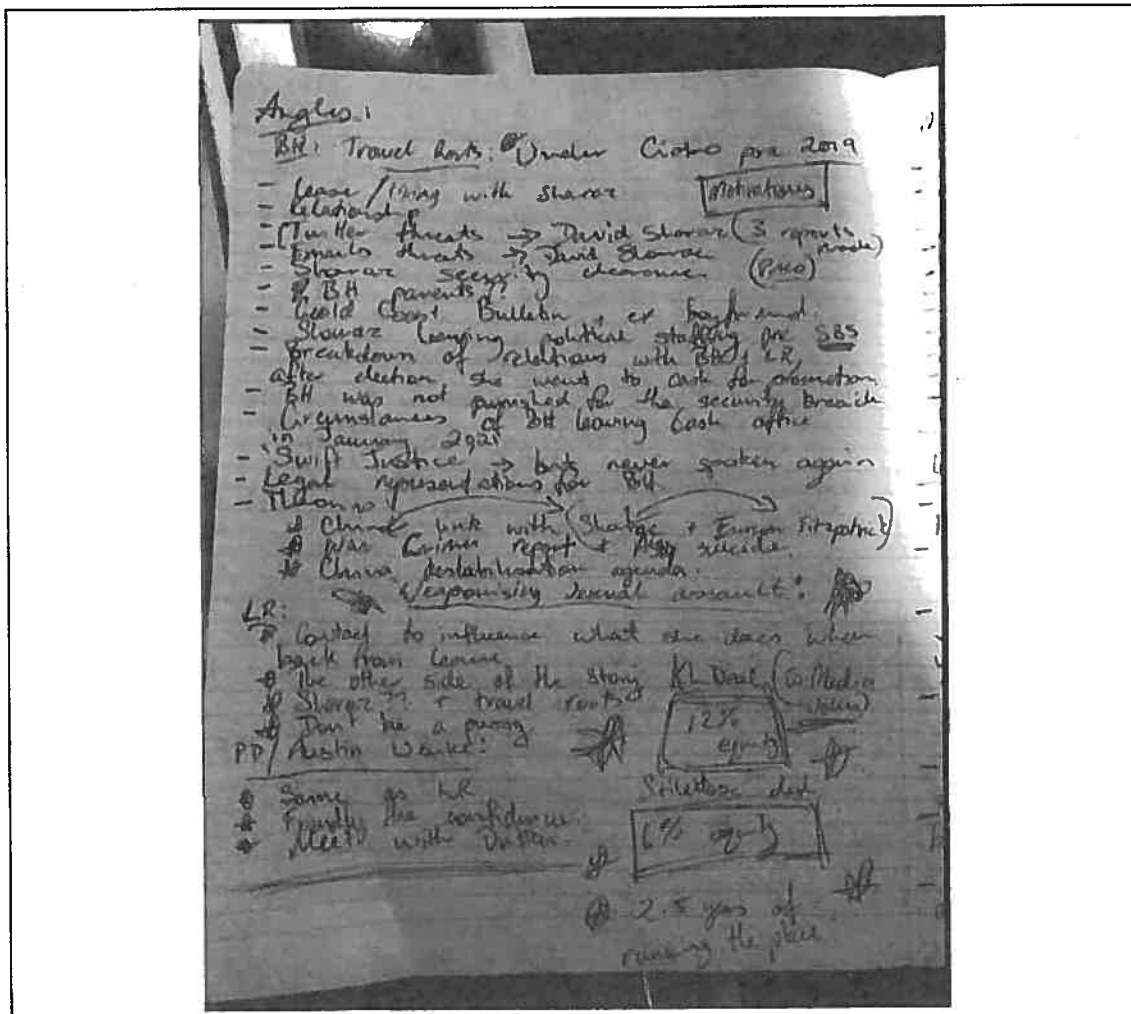 Angles:
BH: Travel Rorts: Under Ciobo pre 2019
- Lease / living with Sharaz
Motivations
- Relationship
- [Twitter threats → David Sharaz (3 reports made)
- Emails threats → David Sharaz (PMO)
- Sharaz security clearance
- BH parents?
- Gold Coast Bulletin, ex boyfriend.
- Sharaz leaving political staffing for SBS
- Breakdown of relations with BH & LR,
after election she went to Cash for promotion
- BH was not punished for the security breach
- Circumstances of BH leaving Cash office
in January 2021
- 'Swift Justice → but never spoken again
- Legal representations for BH
-
China link with (Sharaz + Fitzpatrick)
War Crimes report + suicide.
China destabilisation agenda.
Weaponising sexual assault!
LR:
Contact to influence what she does when
back from leave
The other side of the story
KL Deal (
Sharaz?? + travel rorts
Don't be a
12% equity
PD/Austin Wenke:
Same as LR
Stiletto deal
the confidence.
6% equity
Meet with
2.5 years of
running the place